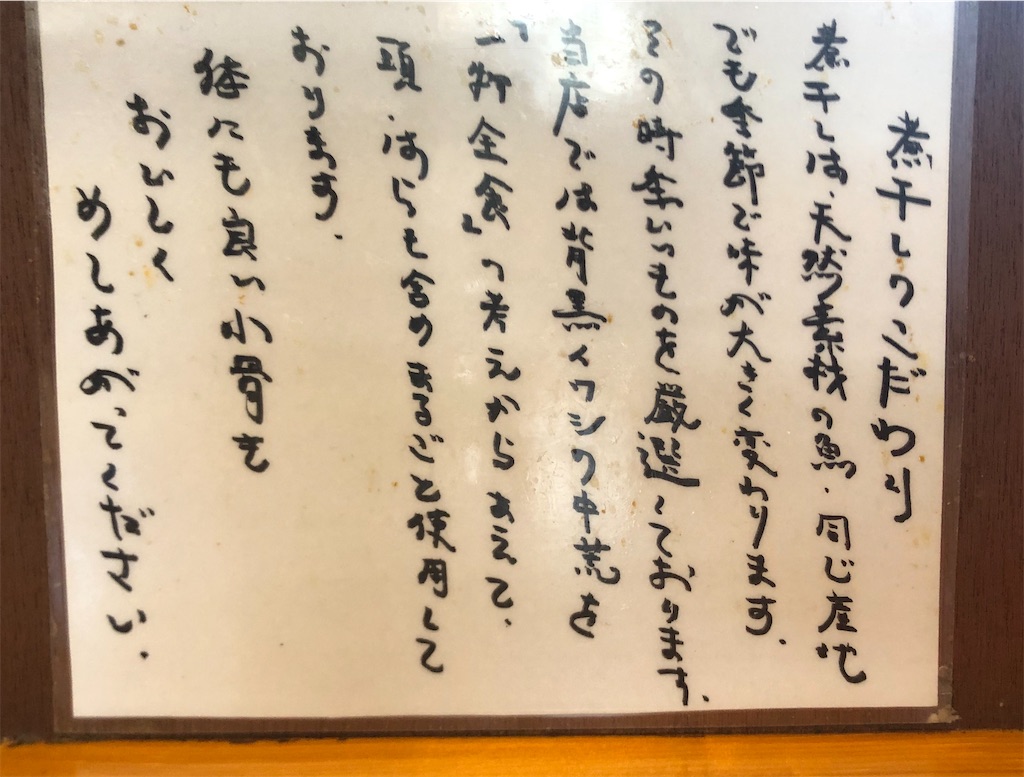 煮干しのこだわり
煮干しは、天然素材の魚、同じ産地
でも季節で味が大きく変わります。
その時季いいものを厳選しております。
当店では背黒イワシの中荒を
「一物全食」の考えからあえて、
頭、はらも含めまるごと使用して
おります。
体にも良い小骨も
おいしく
めしあがってください。